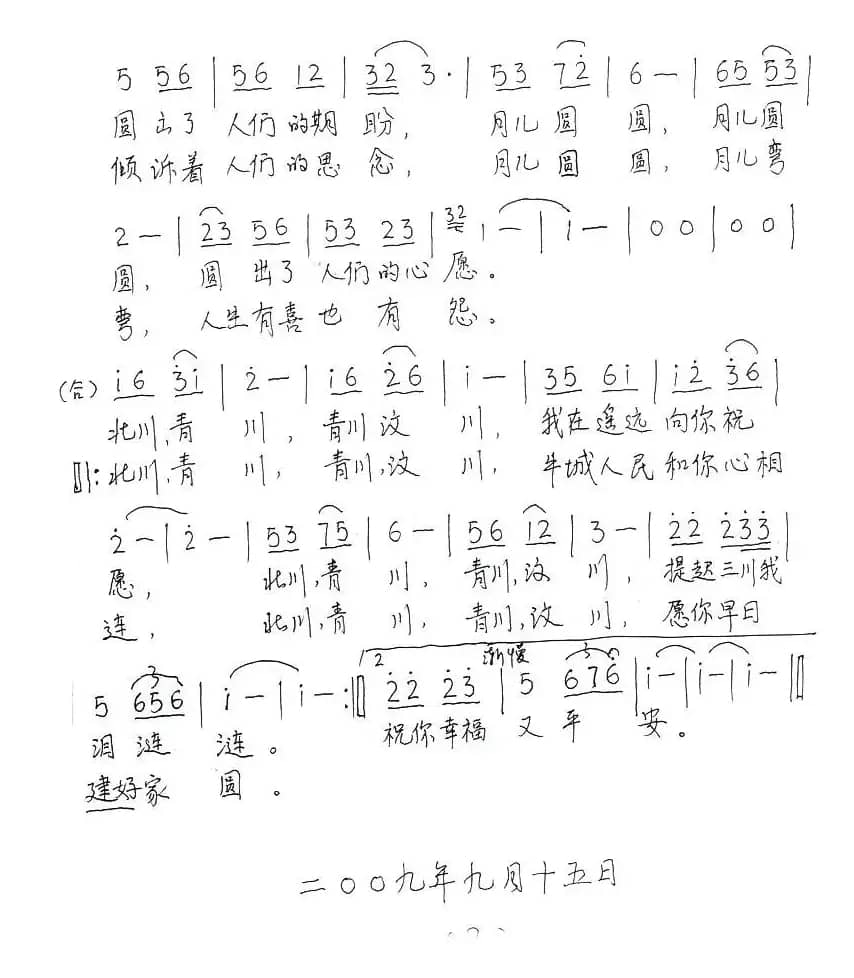 5 56 | 56 12 | 32 3· | 53 72̇ | 6 — | 65 53 |
圆出了人们的期盼, 月儿圆圆, 月儿圆
倾诉着人们的思念, 月儿圆圆, 月儿弯
2 — | 23 56 | 53 23 | 32 1 — | i — | 0 0 | 0 0 |
圆, 圆出了人们的心愿。
弯, 人生有喜也有怨。
(合) i6 3̇i | 2̇ — | i6 2̇6 | i — | 35 6i | i2̇ 3̇6 |
北川,青川, 青川汶川, 我在遥远向你祝
‖: 北川,青川, 青川,汶川, 牛城人民和你心相
2̇ — | 2̇ — | 53 75 | 6 — | 56 i2 | 3 — | 2̇2̇ 2̇3̇3̇ |
愿, 北川,青川, 青川,汶川, 提起三川我
连, 北川,青川, 青川,汶川, 愿你早日
2 渐慢
5 656 | i — | i — :‖ 2̇2̇ 2̇3̇ | 5 676̇ | i — | i — | i — ‖
泪涟涟。 祝你幸福又平安。
建好家圆。
二〇〇九年九月十五日